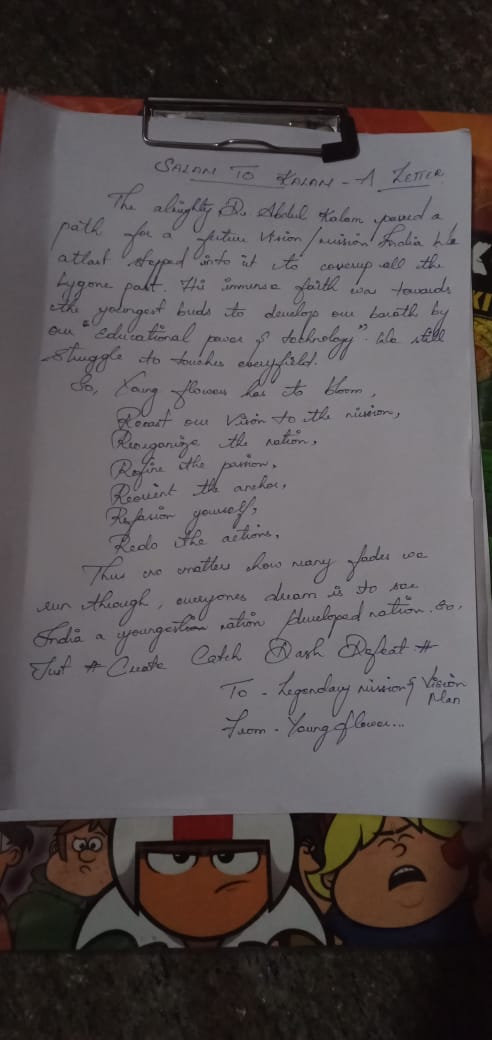 SALAM TO KALAM - A LETTER
The almighty Dr. Abdul Kalam paved a
path for a future vision/mission/India. We
atlast stepped into it to coverup all the
bygone past. His immense faith was towards
the youngest buds to develop our barath by
our "Educational power & technology". We still
struggle to touches everyfield.
So, Young flowers has to bloom,
Recast our Vision to the mission,
Reorganize the nation,
Refine the passion,
Reorient the anchor,
Refasion yourself,
Redo the actions,
Thus no matters how many fades we
run through, everyones dream is to see
India a youngest nation / developed nation. So,
Just # Create Catch Dash Defeat #
To - Legendary mission & Vision
Man
From - Young flower...